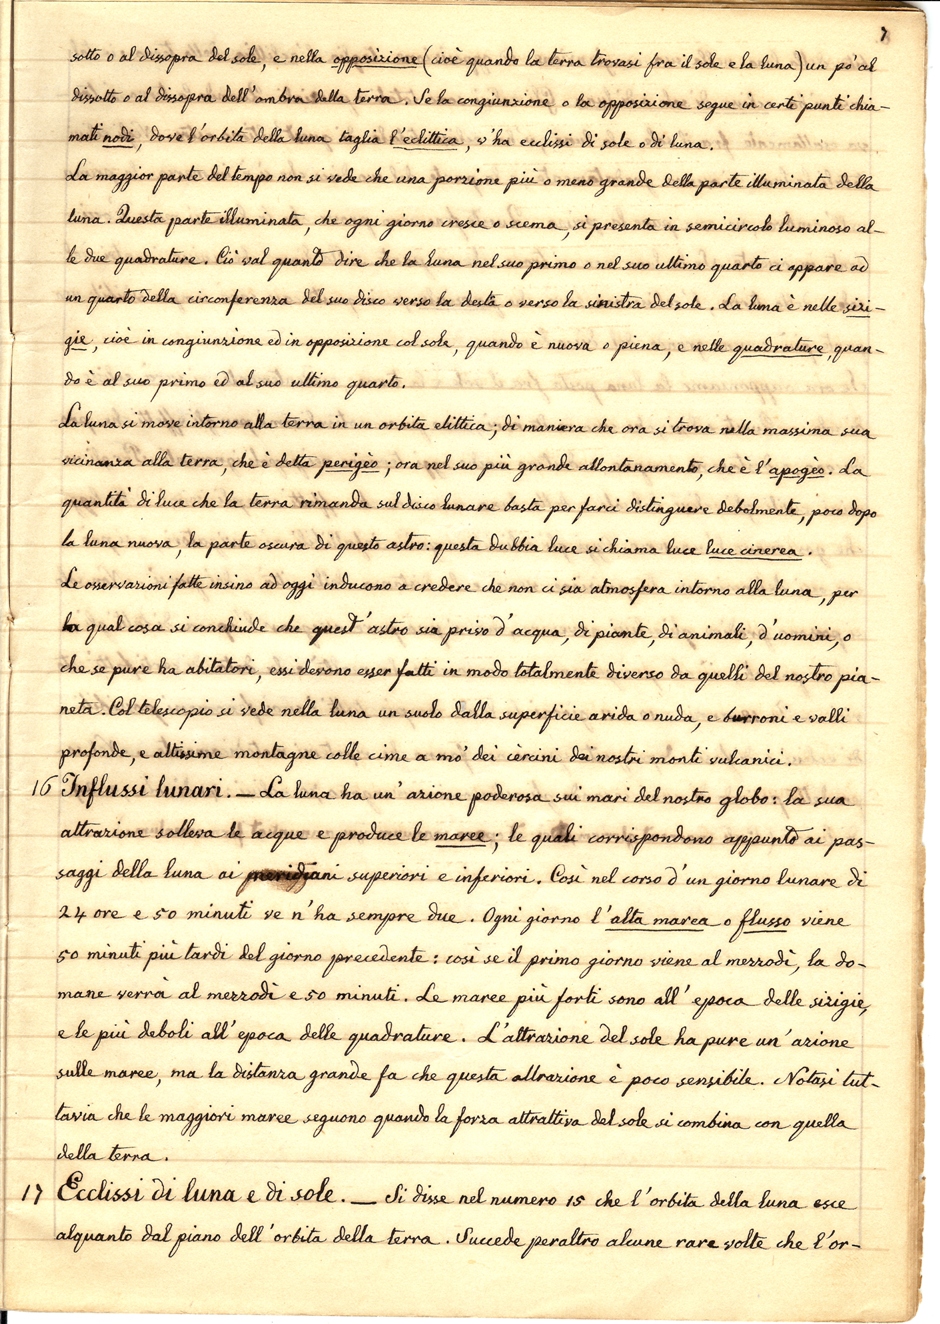 7
sotto o al dissopra del sole, e nella opposizione (cioè quando la terra trovasi fra il sole e la luna) un pò al
dissotto o al dissopra dell'ombra della terra. Se la congiunzione o la opposizione segue in certi punti chia-
mati nodi, dove l'orbita della luna taglia l'eclittica, v'ha ecclissi di sole o di luna.
La maggior parte del tempo non si vede che una porzione più o meno grande della parte illuminata della
luna. Questa parte illuminata, che ogni giorno cresce o scema, si presenta in semicircolo luminoso al-
le due quadrature. Ciò val quanto dire che la luna nel suo primo o nel suo ultimo quarto ci appare ad
un quarto della circonferenza del suo disco verso la desta o verso la sinistra del sole. La luna è nelle sizi-
gie, cioè in congiunzione ed in opposizione col sole, quando è nuova o piena, e nelle quadrature, quan-
do è al suo primo ed al suo ultimo quarto.
La luna si move intorno alla terra in un orbita elittica; di maniera che ora si trova nella massima sua
vicinanza alla terra, che è detta perigèo; ora nel suo più grande allontanamento, che è l'apogèo. La
quantità di luce che la terra rimanda sul disco lunare basta per farci distinguere debolmente, poco dopo
la luna nuova, la parte oscura di questo astro: questa dubbia luce si chiama luce luce cinerea.
Le osservazioni fatte insino ad oggi inducono a credere che non ci sia atmosfera intorno alla luna, per
la qual cosa si conchiude che quest'astro sia privo d'acqua, di piante, di animali, d'uomini, o
che se pure ha abitatori, essi devono esser fatti in modo totalmente diverso da quelli del nostro pia-
neta. Col telescopio si vede nella luna un suolo dalla superficie arida o nuda, e burroni e valli
profonde, e altissime montagne colle cime a mo' dei cèrcini dei nostri monti vulcanici.
16 Influssi lunari. — La luna ha un'azione poderosa sui mari del nostro globo: la sua
attrazione solleva le acque e produce le maree; le quali corrispondono appunto ai pas-
saggi della luna ai meridiani superiori e inferiori. Così nel corso d'un giorno lunare di
24 ore e 50 minuti ve n'ha sempre due. Ogni giorno l'alta marea o flusso viene
50 minuti più tardi del giorno precedente: così se il primo giorno viene al mezzodì, la do-
mane verrà al mezzodì e 50 minuti. Le maree più forti sono all'epoca delle sizigie,
e le più deboli all'epoca delle quadrature. L'attrazione del sole ha pure un'azione
sulle maree, ma la distanza grande fa che questa attrazione è poco sensibile. Notasi tut-
tavia che le maggiori maree seguono quando la forza attrattiva del sole si combina con quella
della terra.
17 Ecclissi di luna e di sole. — Si disse nel numero 15 che l'orbita della luna esce
alquanto dal piano dell'orbita della terra. Succede peraltro alcune rare volte che l'or-